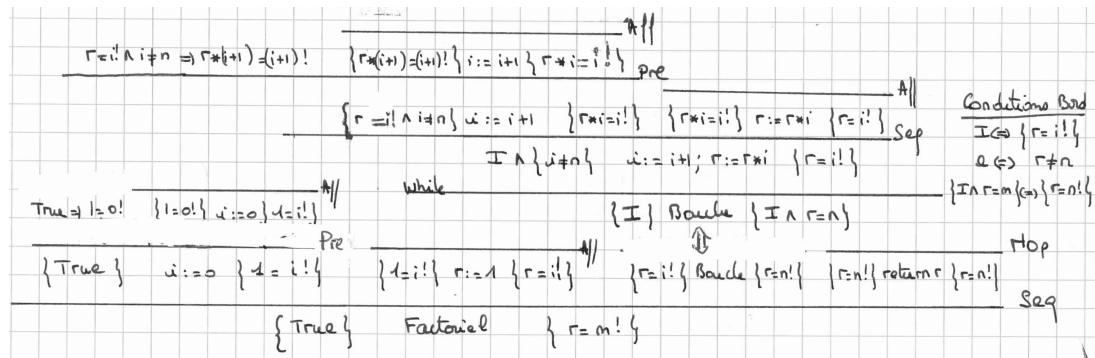 Aff
r=i! ∧ i≠n ⇒ r*(i+1)=(i+1)! {r*(i+1)=(i+1)!} i:=i+1 {r*i=i!} Pre
Aff
{r=i! ∧ i≠n} i:=i+1 {r*i=i!} {r*i=i!} r:=r*i {r=i!} Seq
I ∧ {i≠n} i:=i+1; r:=r*i {r=i!}
Conditions Bool
I⇔{r=i!}
e⇔ r≠n
{I∧r=n}⇔{r=n!}
Aff while
True⇒1=0! {1=0!} i:=0 {1=i!} {I} Boucle {I∧ r=n}
Pre Aff ⇕ Nop
{True} i:=0 {1=i!} {1=i!} r:=1 {r=i!} {r=i!} Boucle {r=n!} {r=n!} return r {r=n!}
Seq
{True} Factoriel {r=n!}